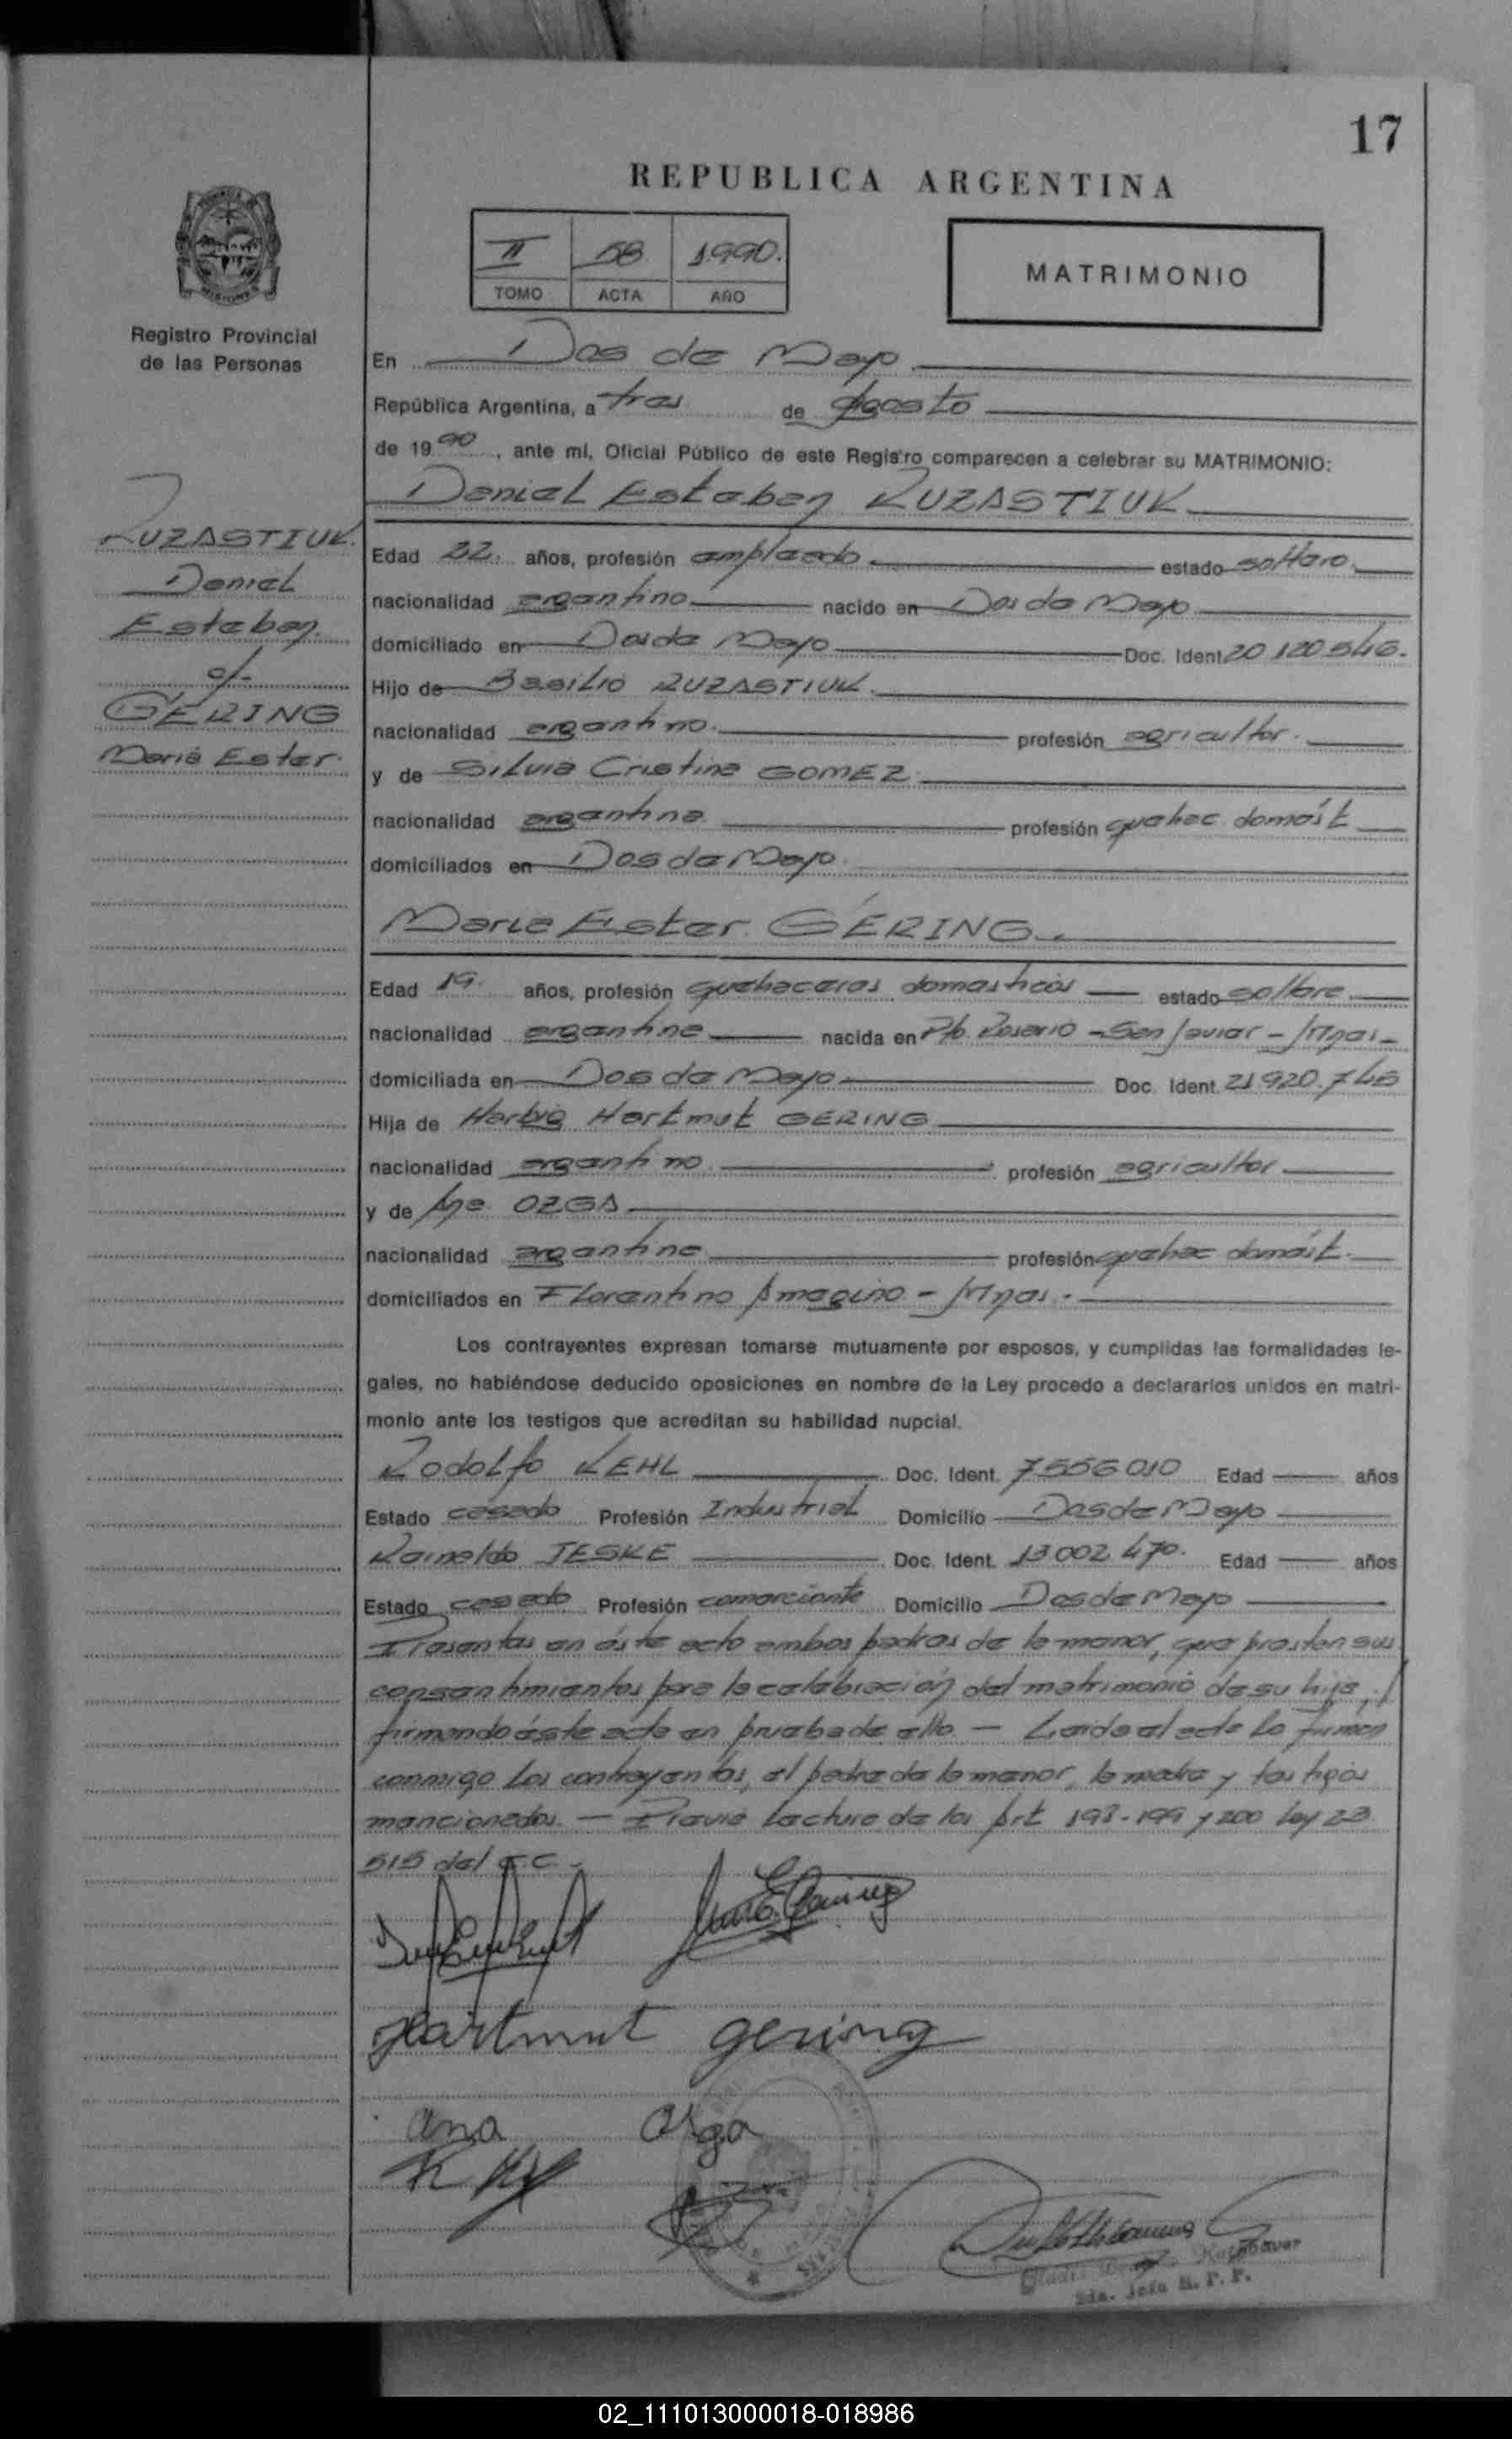 17
REPUBLICA ARGENTINA
II 58 1.990.
TOMO ACTA AÑO
MATRIMONIO
MISIONES
Registro Provincial
de las Personas
En Dos de Mayo
República Argentina, a tres de Agosto
de 1990, ante mí, Oficial Público de este Registro comparecen a celebrar su MATRIMONIO:
Daniel Esteban RUZASTIUK
RUZASTIUK.
Daniel
Esteban.
c/-
GERING
María Ester.
Edad 22. años, profesión empleado estado soltero
nacionalidad argentino nacido en Dos de Mayo
domiciliado en Dos de Mayo Doc. Ident. 20.120.546.
Hijo de Basilio RUZASTIUK.
nacionalidad argentino. profesión agricultor.
y de Silvia Cristina GOMEZ
nacionalidad argentina profesión quehac. domést.
domiciliados en Dos de Mayo.
María Ester GERING.
Edad 19. años, profesión quehaceres domésticos estado soltera
nacionalidad argentina nacida en Pto. Rosario - San Javier - Mnes.-
domiciliada en Dos de Mayo Doc. Ident. 21.920.745
Hija de Harbig Hartmut GERING
nacionalidad argentino profesión agricultor
y de Ana OZGA
nacionalidad argentina profesión quehac. domést.
domiciliados en Florentino Ameghino - Mnes.-
Los contrayentes expresan tomarse mutuamente por esposos, y cumplidas las formalidades le-
gales, no habiéndose deducido oposiciones en nombre de la Ley procedo a declararlos unidos en matri-
monio ante los testigos que acreditan su habilidad nupcial.
Rodolfo KEHL Doc. Ident. 7556010 Edad años
Estado casado Profesión Industrial Domicilio Dos de Mayo
Reinaldo JESKE Doc. Ident. 13.002.470. Edad años
Estado casado Profesión comerciante Domicilio Dos de Mayo
Presentes en éste acto ambos padres de la menor, que prestan sus
consentimientos para la celebración del matrimonio de su hija, /
firmando éste acta en prueba de ello - Leída el acta la firman
conmigo los contrayentes, el padre de la menor, la madre y testigos
mencionados. - Previa lectura de los Art 198-199 y 200 Ley 23
515 del C.C.-
Hartmut gering
ana Osga
2da. Jefa R. P. P.
02_111013000018-018986